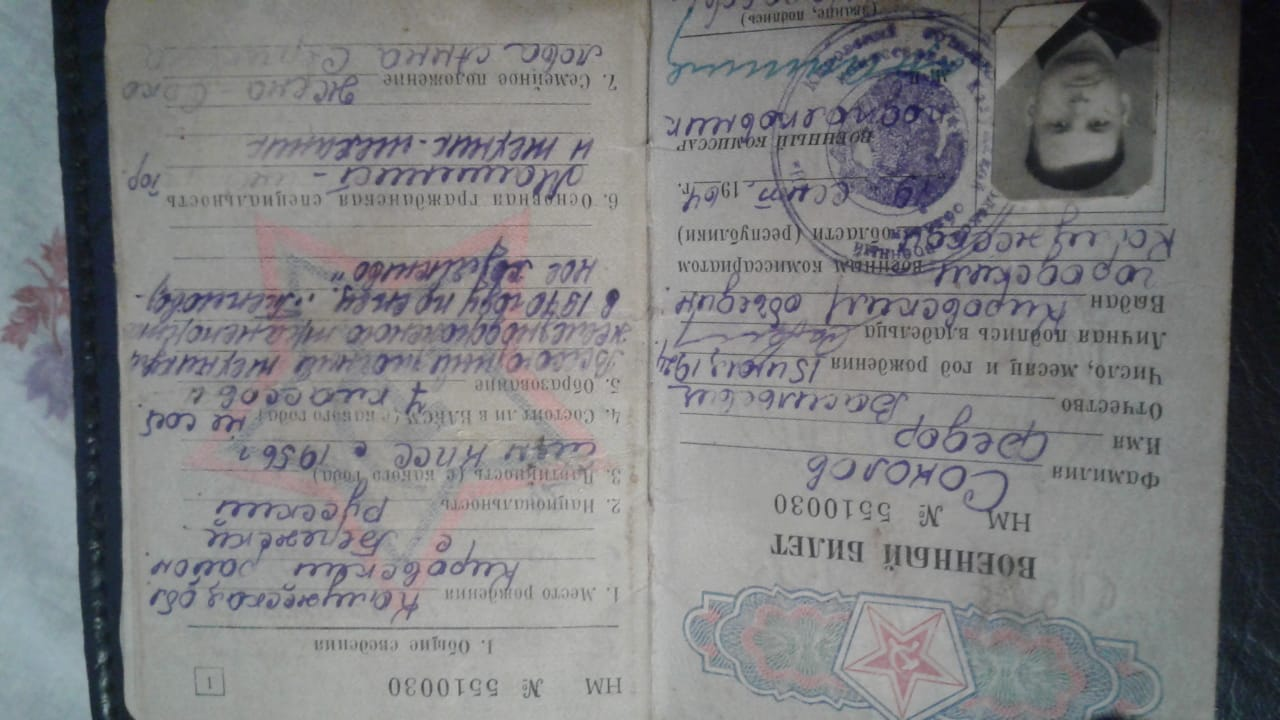 ВОЕННЫЙ БИЛЕТ
НМ № 5510030
Фамилия Соколов
Имя Федор
Отчество Васильевич
Число, месяц и год рождения 15 1924
Личная подпись владельца
Выдан Кировским объедин.
городским военным комиссариатом
Калужской области (республики)
19 сент. 1964 г.
ВОЕННЫЙ КОМИССАР
подполковник
М.П.
(звание, подпись)
НМ № 5510030
1
I. Общие сведения
1. Место рождения Калужская обл
Кировский район
с.
2. Национальность русский
3. Партийность (с какого года)
член КПСС с 1956 г
4. Состоит ли в ВЛКСМ (с какого года) не сост
5. Образование 7 классов и
техникум
железнодорожного транспорта
в 1970 году по спец. "Тепловоз-
ное хозяйство"
6. Основная гражданская специальность
и техник-механик
7. Семейное положение Жена Соко
лова Анна